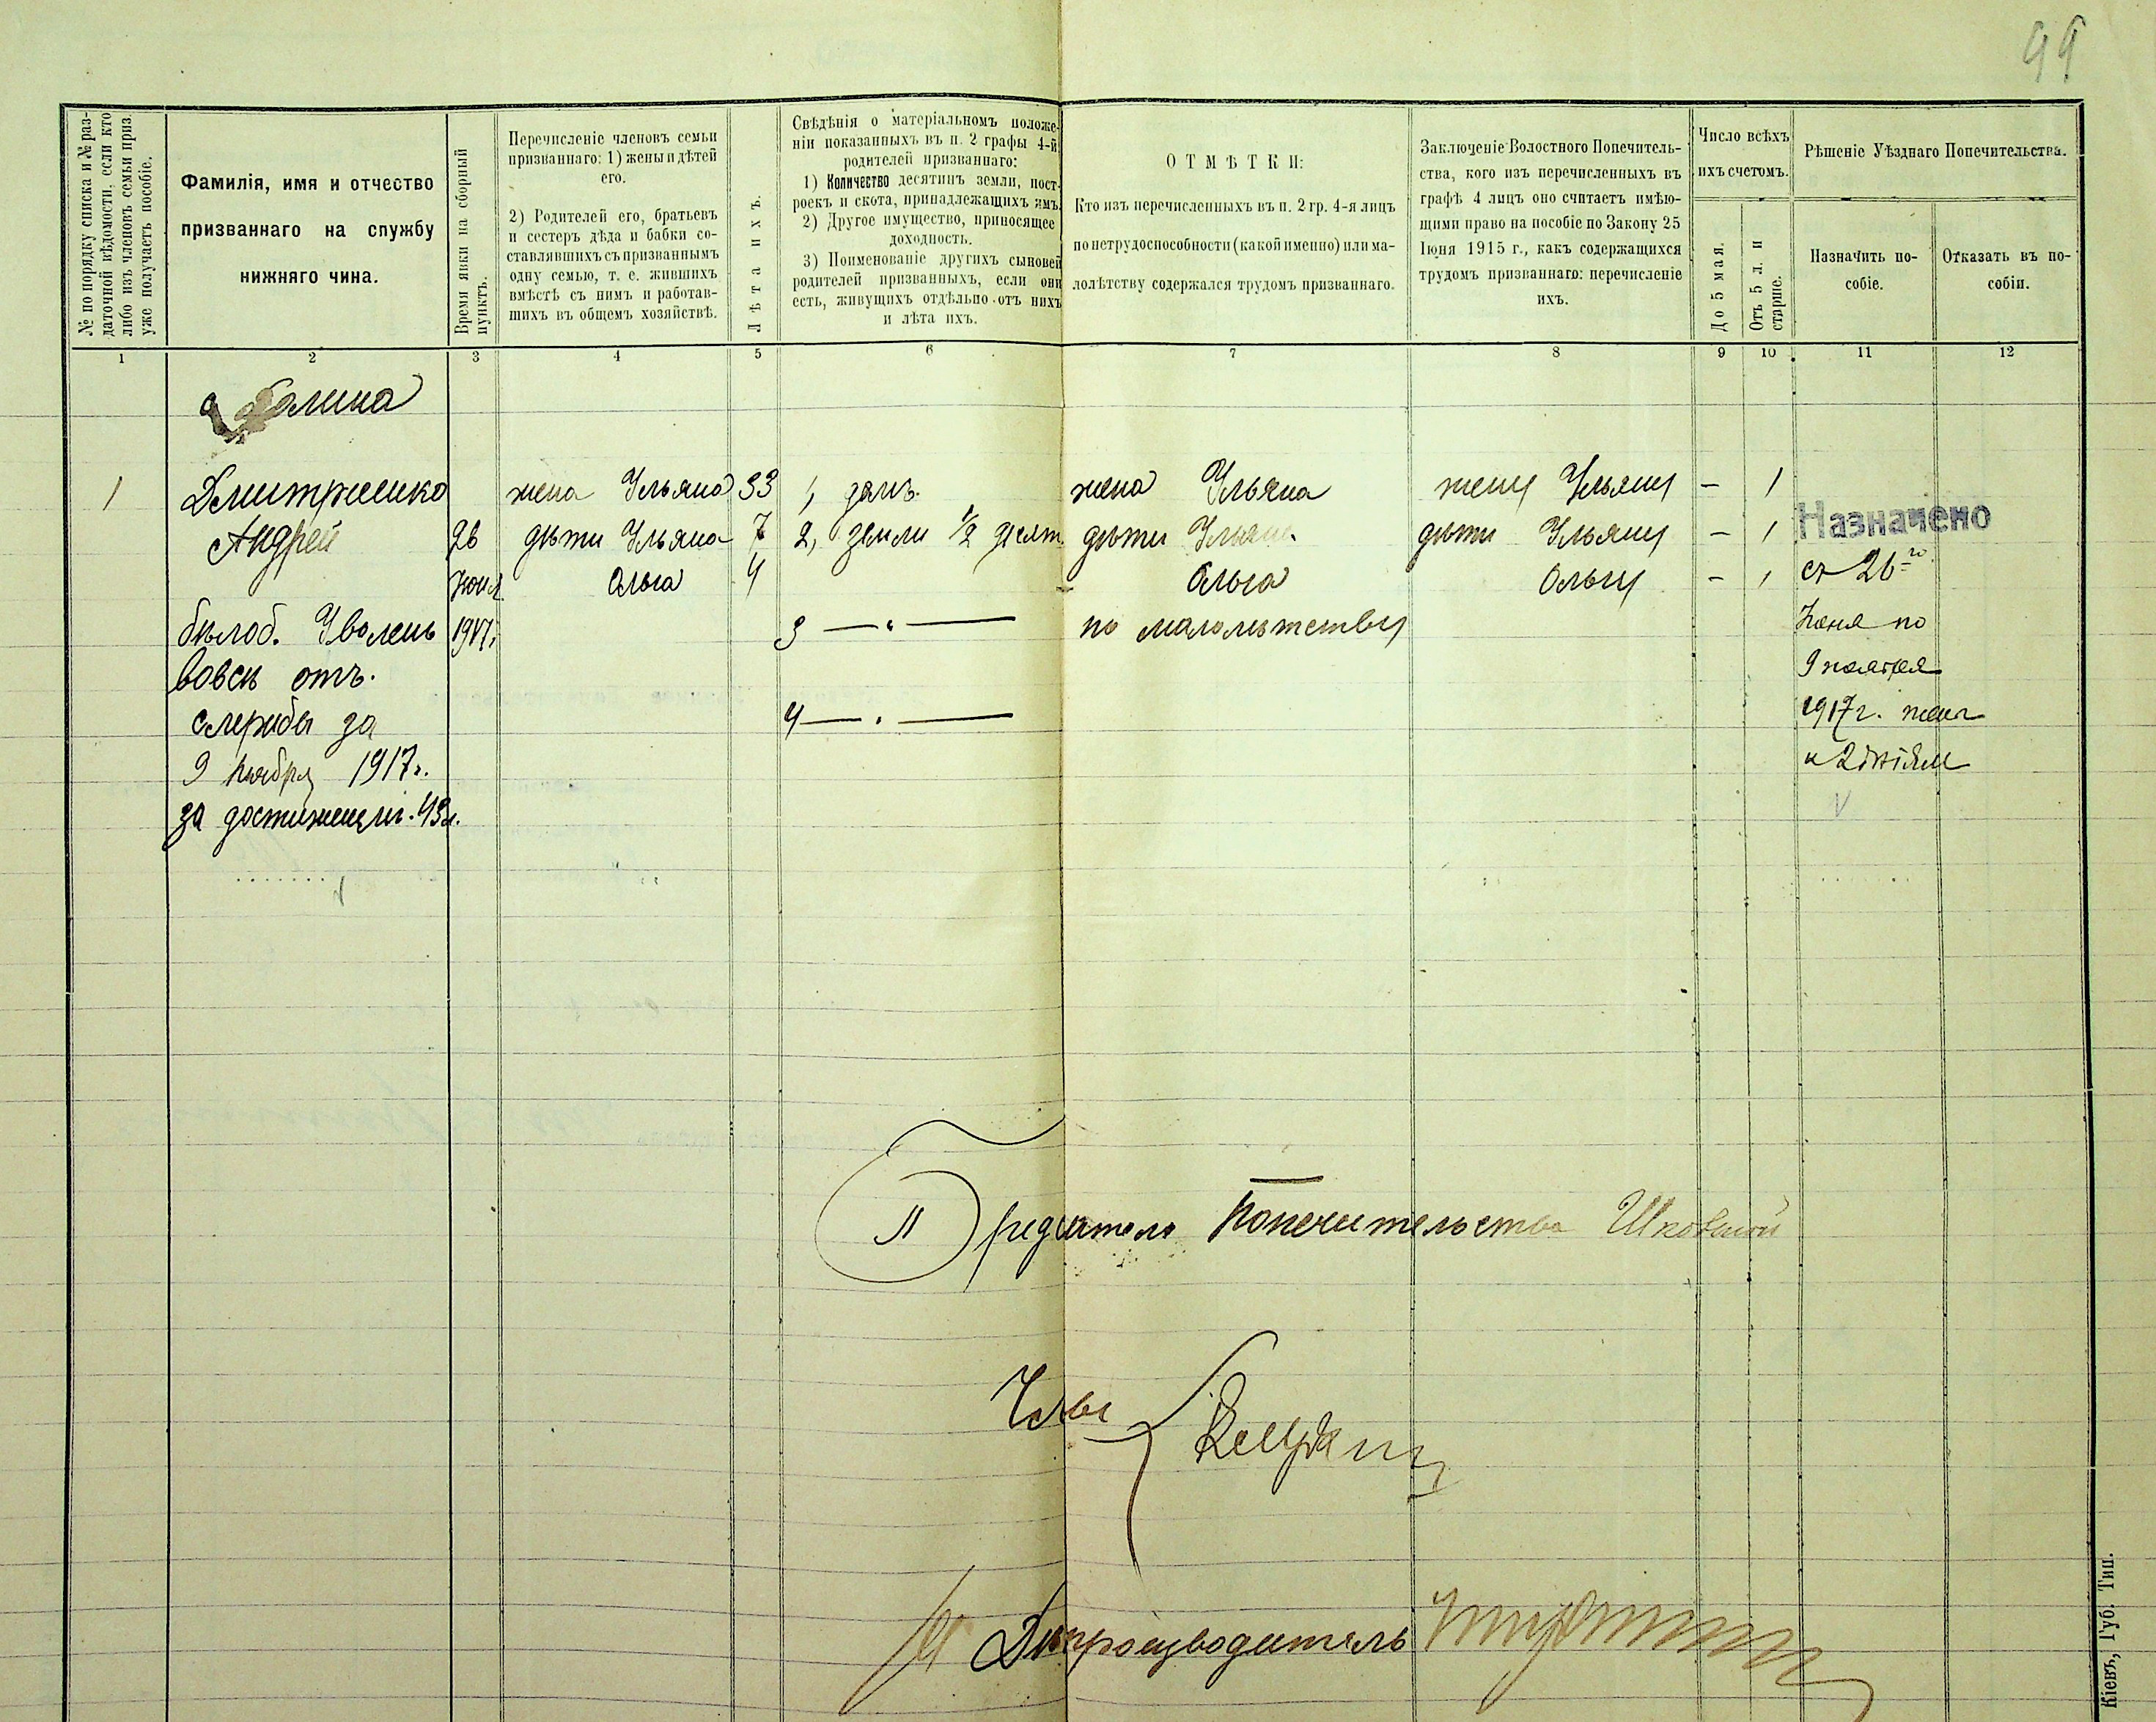 99
№ по порядку списка и № раз-
даточной вѣдомости, если кто
либо изъ членовъ семьи приз.
уже получаетъ пособіе.
Фамилія, имя и отчество
призваннаго на службу
нижняго чина.
Время явки на сборный
пунктъ.
Перечисленіе членовъ семьи
призваннаго: 1) жены и дѣтей
его.
2) Родителей его, братьевъ
и сестеръ дѣда и бабки со-
ставлявшихъ съ призваннымъ
одну семью, т. е. жившихъ
вмѣстѣ съ нимъ и работав-
шихъ въ общемъ хозяйствѣ.
Лѣта ихъ.
Свѣдѣнія о матеріальномъ положе-
ніи показанныхъ въ п. 2 графы 4-й
родителей призваннаго:
1) Количество десятинъ земли, пост-
роекъ и скота, принадлежащихъ имъ.
2) Другое имущество, приносящее
доходность.
3) Поименованіе другихъ сыновей
родителей призванныхъ, если они
есть, живущихъ отдѣльно отъ нихъ
и лѣта ихъ.
ОТМѢТКИ:
Кто изъ перечисленныхъ въ п. 2 гр. 4-я лицъ
по нетрудоспособности (какой именно) или ма-
лолѣтству содержался трудомъ призваннаго.
Заключеніе Волостного Попечитель-
ства, кого изъ перечисленныхъ въ
графѣ 4 лицъ оно считаетъ имѣю-
щими право на пособіе по Закону 25
Іюня 1915 г., какъ содержащихся
трудомъ призваннаго: перечисленіе
ихъ.
Число всѣхъ
ихъ счетомъ.
До 5 мая.
Отъ 5 л. и
старше.
Рѣшеніе Уѣзднаго Попечительства.
Назначить по-
собіе.
Отказать въ по-
собіи.
1 2 3 4 5 6 7 8 9 10 11 12
1 Дмитренко жена Ульяна 33 1, жена Ульяна жену Ульяну – 1
Андрей 26 дѣти Ульяна 7 2, земли 1/2 десят. дѣти Ульяна дѣти Ульяну – 1 Назначено
Іюня Ольга 4 Ольга Ольгу – 1 съ 26го
бѣлоб. Уволенъ 1917г. 3 —„— по малолѣтству Іюня по
вовсе отъ 9 ноября
службы за 4 —„— 1917 г. жена
9 ноября 1917 г. и 2 дѣтям
за достиженіем. 43 л.
Предсѣдатель Попечительства
Члены
Дѣлопроизводитель
Кіевъ, Губ. Тип.